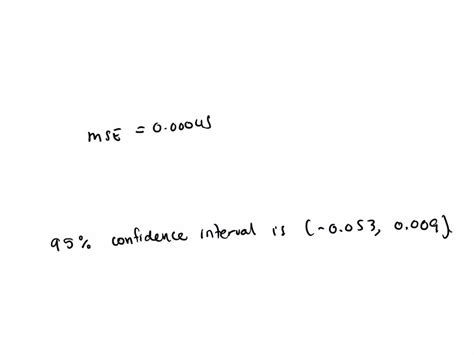 MSE = 0.00045
95% confidence interval is (-0.053, 0.009)